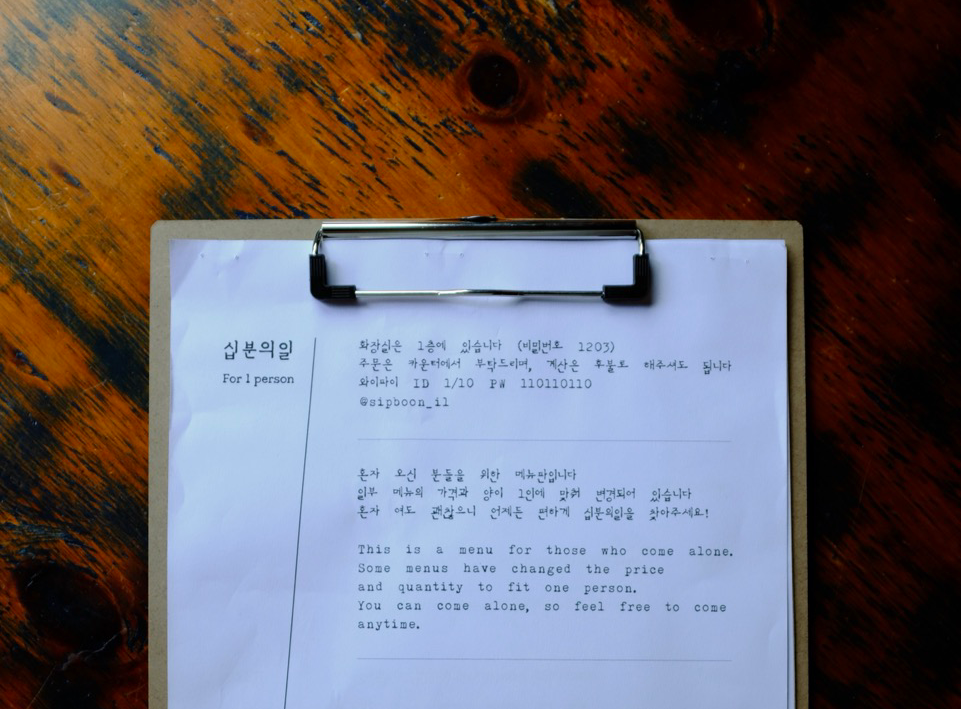 십분의일
For 1 person
화장실은 1층에 있습니다 (비밀번호 1203)
주문은 카운터에서 부탁드리며, 계산은 후불로 해주셔도 됩니다
와이파이 ID 1/10 PW 110110110
@sipboon_il
혼자 오신 분들을 위한 메뉴판입니다
일부 메뉴의 가격과 양이 1인에 맞춰 변경되어 있습니다
혼자 여도 괜찮으니 언제든 편하게 십분의일을 찾아주세요!
This is a menu for those who come alone.
Some menus have changed the price
and quantity to fit one person.
You can come alone, so feel free to come
anytime.